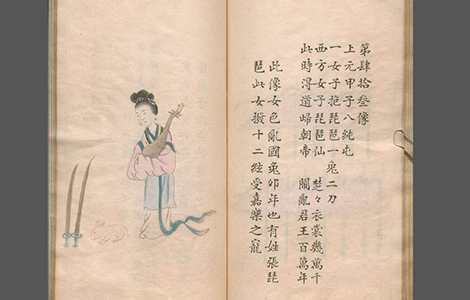 第肆拾叁像
上元甲子八純屯
一女子抱琵琶一兔二刀
西方女子琵琶仙　楚々衣裳幾萬千
此時淂道歸朝帝　闹亂君王百萬年
此像女色亂國兔卯年也有姓張琵
琶此女撥十二絃受嘉樂之寵